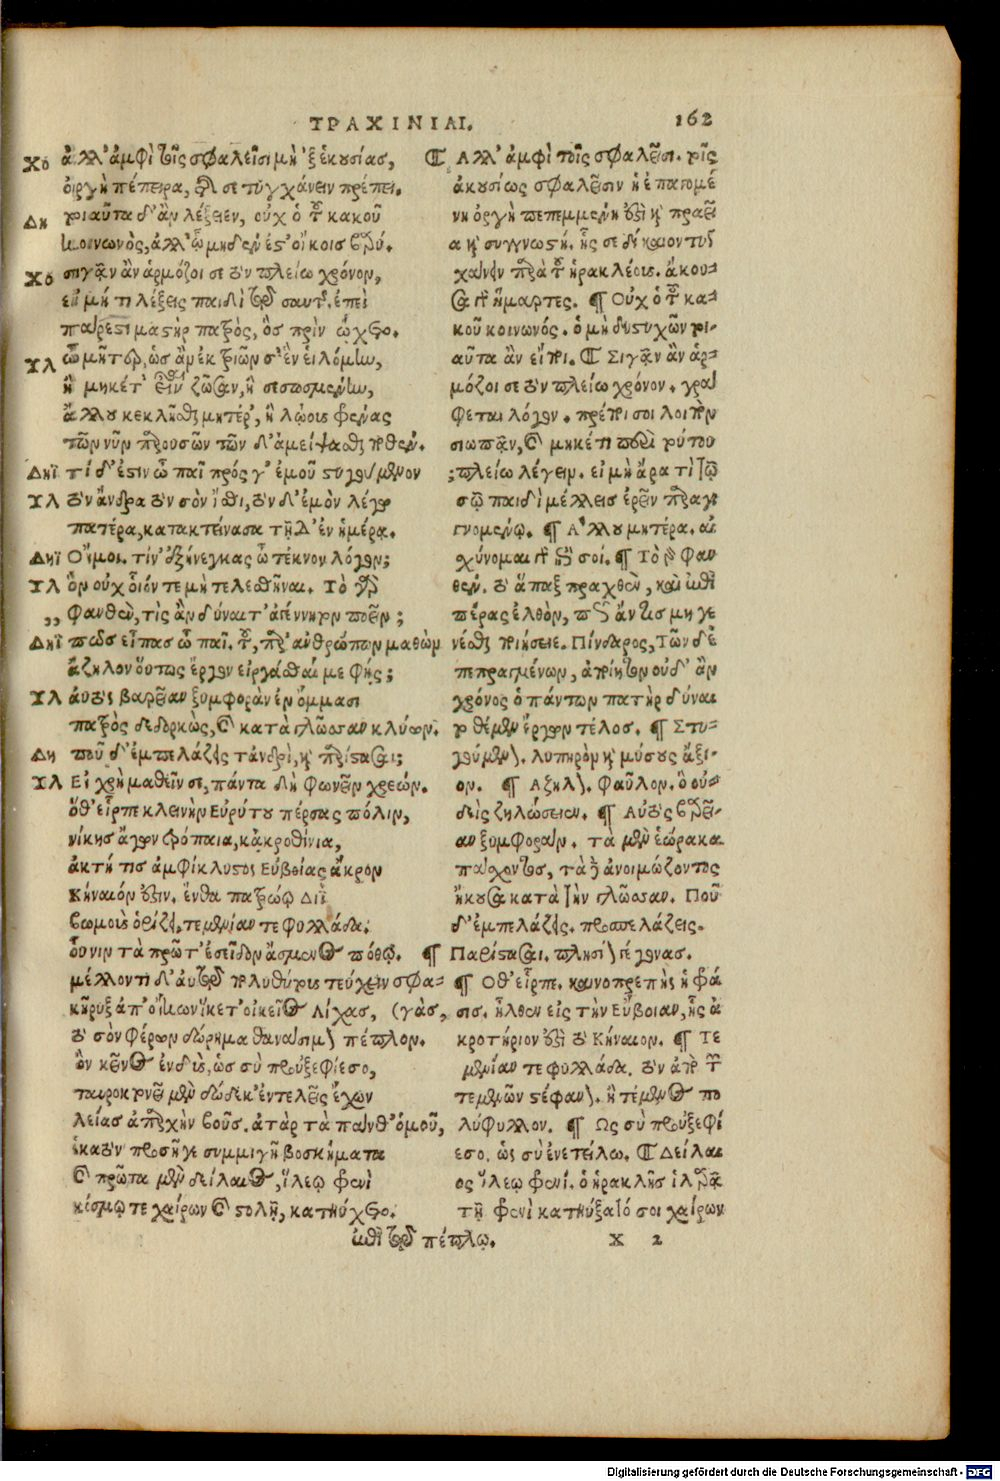 ΤΡΑΧΙΝΙΑΙ.
162
Χό ἀλλ' ἀμφὶ τοῖς σφαλεῖσι μὴ 'ξ ἑκουσίας,
ὀργὴ πέπειρα, τῆς σε τυγχάνειν πρέπει.
Δη τοιαῦτα δ' ἂν λέξειεν, οὐχ ὁ τοῦ κακοῦ
κοινωνὸς, ἀλλ' ᾧ μηδέν ἐστ' οἴκοις βαρύ.
Χό σιγᾷν ἂν ἁρμόζοι σε τὸν πλείω χρόνον,
εἰ μή τι λέξεις παιδὶ τῷ σαυτῆς. ἐπεὶ
πάρεστι μαστὴρ πατρὸς, ὃς πρὶν ᾤχετο.
Ὑλ ὦ μῆτερ, ὡς ἂν ἐκ τριῶν σ' ἓν εἱλόμην,
ἢ μηκέτ' εἶναι ζῶσαν, ἢ σεσωσμένην,
ἄλλου κεκλῆσθαι μητέρ', ἢ λῴους φρένας
τῶν νῦν παρουσῶν τῶν δ' ἀμείψασθαι ποθεν.
Δηϊ τί δ' ἐστιν ὦ παῖ πρός γ' ἐμοῦ στυγούμενον
Ὑλ τὸν ἄνδρα τὸν σὸν ἴσθι, τὸν δ' ἐμὸν λέγω
πατέρα, κατακτείνασα τῇδ' ἐν ἡμέρᾳ.
Δηϊ Οἴμοι. τίν' ἐξήνεγκας ὦ τέκνον λόγον;
Ὑλ ὃν οὐχ οἷόν τε μὴ τελεσθῆναι. Τὸ γὰρ
,, φανθὲν, τίς ἂν δύναιτ' ἀγέννητον ποεῖν;
Δηϊ πῶς εἶπας ὦ παῖ. τοῦ, παρ' ἀνθρώπων μαθὼν
ἄζηλον οὕτως ἔργον εἰργάσθαί με φῄς;
Ὑλ αὐτὸς βαρεῖαν ξυμφορὰν ἐν ὄμμασι
πατρὸς δεδορκὼς, καὶ κατὰ γλῶσσαν κλύων.
Δη ποῦ δ' ἐμπελάζεις τἀνδρὶ, καὶ παρίστασαι;
Ὑλ Εἰ χρὴ μαθεῖν σε, πάντα δὴ φωνεῖν χρεών.
ὅθ' εἷρπε κλεινὴν Εὐρύτου πέρσας πόλιν,
νίκης ἄγων τρόπαια, κἀκροθίνια,
ἀκτή τις ἀμφίκλυστος Εὐβοίας ἄκρον
Κήναιόν ἐστιν. ἔνθα πατρῴῳ Διῒ
βωμοὺς ὁρίζει, τεμενίαν τε φυλλάδα.
οὗ νιν τὰ πρῶτ' ἐσεῖδον ἄσμενος πόθῳ.
μέλλοντι δ' αὐτῷ πολυθύτους τεύχειν σφα-
κήρυξ ἀπ' οἴκων ἵκετ' οἰκεῖος Λίχας, (γὰς,
τὸ σὸν φέρων δώρημα θανάσιμον πέπλον.
ὃν κεῖνος ἐνδὺς, ὡς σὺ προὐξεφίεσο,
ταυροκτονεῖ μὲν δώδεκ' ἐντελεῖς ἔχων
λείας ἀπαρχὴν βοῦς. ἀτὰρ τὰ πάνθ' ὁμοῦ,
ἑκατὸν προσῆγε συμμιγῆ βοσκήματα
καὶ πρῶτα μὲν δείλαιος, ἵλεῳ φρενὶ
κόσμῳ τε χαίρων καὶ στολῇ, κατηύχετο.
¶ Ἀλλ' ἀμφὶ τοῖς σφαλεῖσι. τοῖς
ἀκουσίως σφαλεῖσιν ἡ ἐπαγομέ
νη ὀργὴ πεπεμμένη ἐστὶ καὶ πραεῖ
α καὶ συγγνωστή. ἧς σε δίκαιον τυγ
χάνειν παρὰ τοῦ ἡρακλέους. ἄκου-
σα γὰρ ἥμαρτες. ¶ Οὐχ ὁ τοῦ κα-
κοῦ κοινωνός. ὁ μὴ δυστυχῶν τοι-
αῦτα ἂν εἴποι. ¶ Σιγᾷν ἂν ἁρ-
μόζοι σε τὸν πλείω χρόνον. γρά
φεται λόγον. πρέποι σοι λοιπὸν
σιωπᾷν, καὶ μηκέτι περὶ τούτου
;πλείω λέγειν. εἰ μὴ ἄρα τι τῷ
σῷ παιδὶ μέλλεις ἐρεῖν παραγι
γνομένῳ. ¶ Ἄλλου μητέρα. αἰ
σχύνομαι γὰρ ἐπὶ σοί. ¶ Τὸ γὰρ φαν
θέν. τὸ ἅπαξ πραχθὲν, καὶ ἐπὶ
πέρας ἐλθὸν, πῶς ἄν τις μὴ γε
νέσθαι ποιήσειε. Πίνδαρος, Τῶν δὲ
πεπραγμένων, ἀποίητον οὐδ' ἂν
χρόνος ὁ πάντων πατὴρ δύναι
το θέμεν ἔργων τέλος. ¶ Στυ-
γούμενον. λυπηρὸν καὶ μίσους ἄξι-
ον. ¶ Ἄζηλον. φαῦλον. ὃ οὐ-
δεὶς ζηλώσειεν. ¶ Αὐτὸς βαρεῖ-
αν ξυμφοράν. τὰ μὲν ἑώρακα
πάσχοντος, τὰ δὲ ἀνοιμώζοντος
ἤκουσα κατὰ τὴν γλῶσσαν. Ποῦ
δ' ἐμπελάζεις. προσπελάζεις.
¶ Παρίστασαι. πλησίον γέγονας.
¶ Ὅθ' εἷρπε. καινοπρεπὴς ἡ φρά
σις. ἦλθεν εἰς τὴν Εὔβοιαν, ἧς ἀ
κροτήριον ἐστὶ τὸ Κήναιον. ¶ Τε
μενίαν τε φυλλάδα. τὸν ἀπὸ τοῦ
τεμενῶν στέφανον. ἢ τέμενος πο
λύφυλλον. ¶ Ὡς σὺ προὐξεφί
εσο. ὡς σὺ ἐνετείλω. ¶ Δείλαι
ος ἵλεῳ φρενί. ὁ ἡρακλῆς ἱλαρᾷ
τῇ φρενὶ κατηύξατό σοι χαίρων
ἐπὶ τῷ πέπλῳ.
X 2
Digitalisierung gefördert durch die Deutsche Forschungsgemeinschaft - DFG